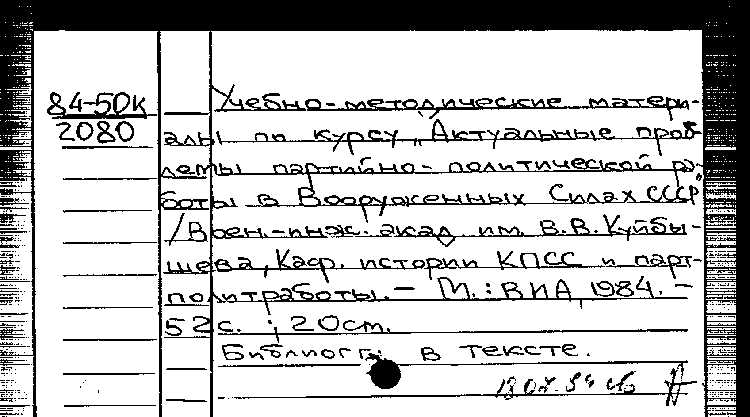 84-5ДК
2080
Учебно-методические матери-
алы по курсу „Актуальные проб-
лемы партийно-политической ра-
боты в Вооруженных Силах СССР"
/Воен.-инж. акад им. В.В. Куйбы-
шева, Каф. истории КПСС и парт-
политработы. — М.: ВИА, 1984. —
52с. ; 20см.
Библиогр. в тексте.